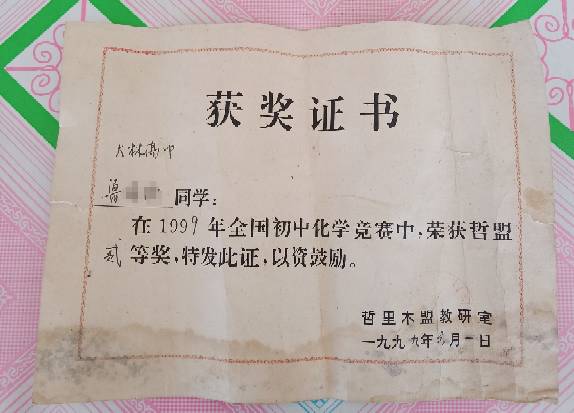 获奖证书
大林高中
同学：
在1999年全国初中化学竞赛中，荣获哲盟
贰等奖，特发此证，以资鼓励。
哲里木盟教研室
一九九九年 月一日